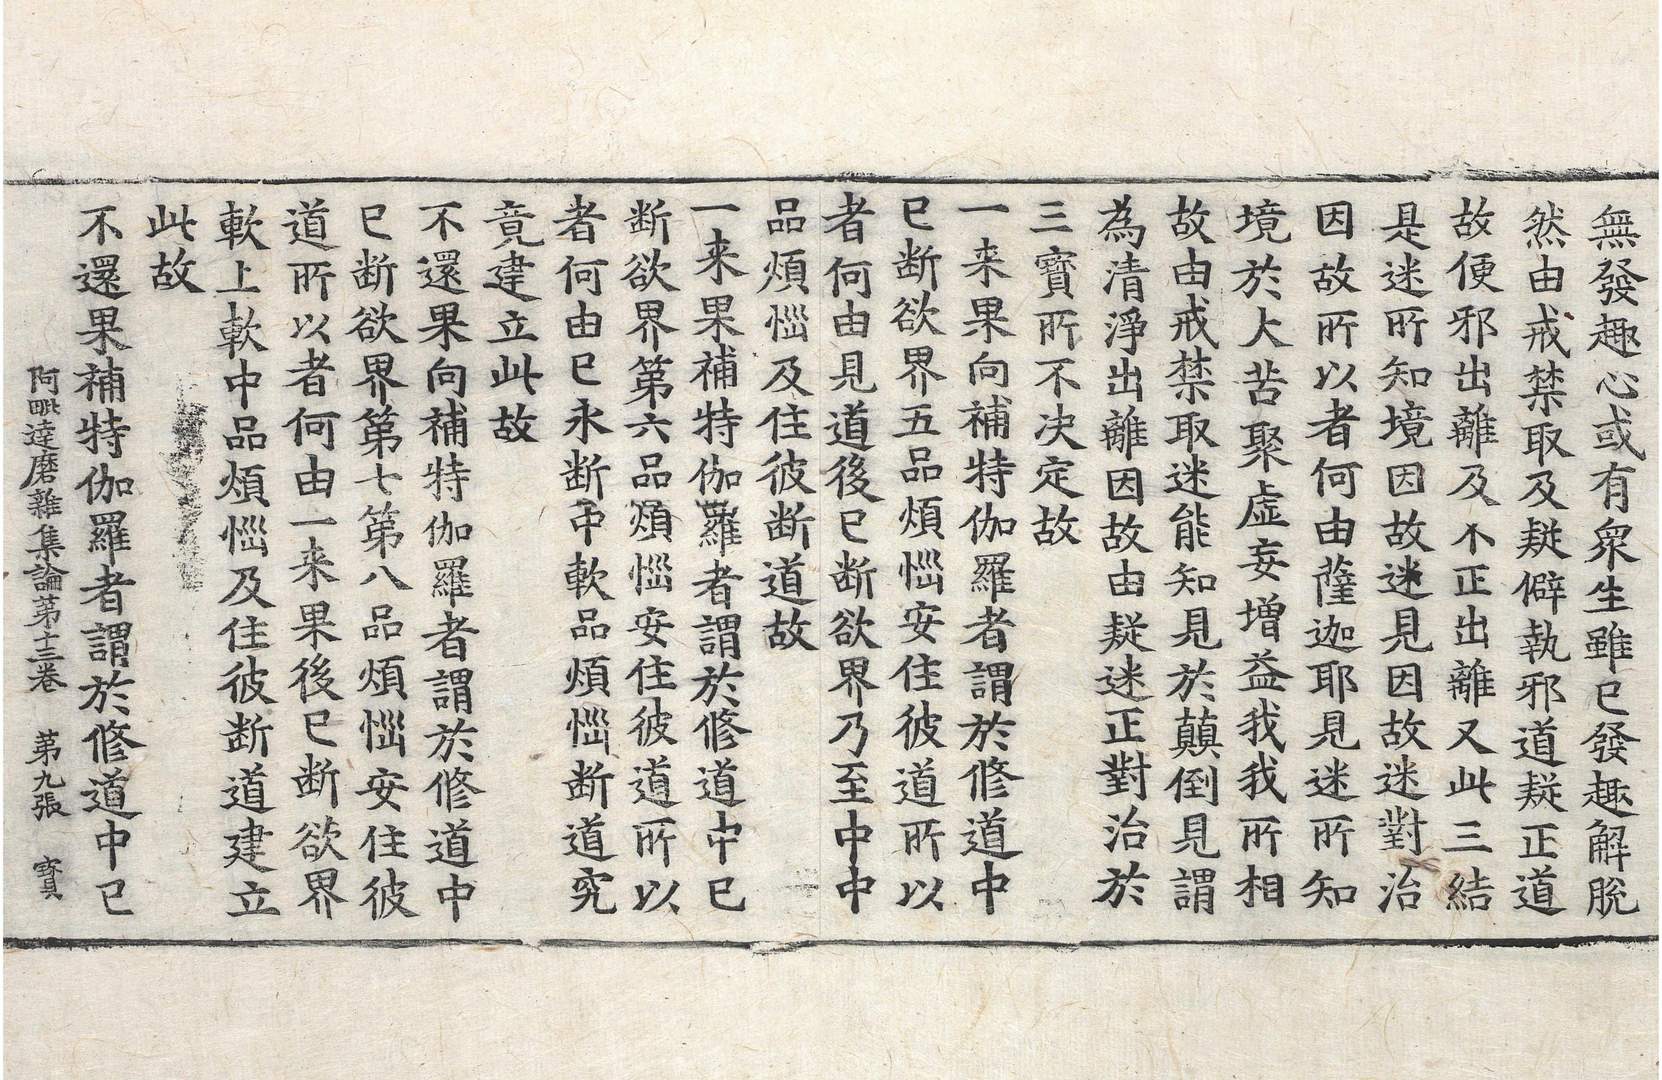 無發趣心或有衆生雖已發趣解脫
然由戒禁取及疑僻執邪道疑正道
故便邪出離及不正出離又此三結
是迷所知境因故迷見因故迷對治
因故所以者何由薩迦耶見迷所知
境於大苦聚虛妄增益我我所相
故由戒禁取迷能知見於顛倒見謂
為清淨出離因故由疑迷正對治於
三寶所不决定故
一来果向補特伽羅者謂於修道中
已断欲界五品煩惱安住彼道所以
者何由見道後已断欲界乃至中中
品煩惱及住彼断道故
一来果補特伽羅者謂於修道中已
断欲界第六品煩惱安住彼道所以
者何由已永断中軟品煩惱断道究
竟建立此故
不還果向補特伽羅者謂於修道中
已断欲界第七第八品煩惱安住彼
道所以者何由一来果後已断欲界
軟上軟中品煩惱及住彼断道建立
此故
不還果補特伽羅者謂於修道中已
阿毗達磨雜集論第十三卷 第九張 寳